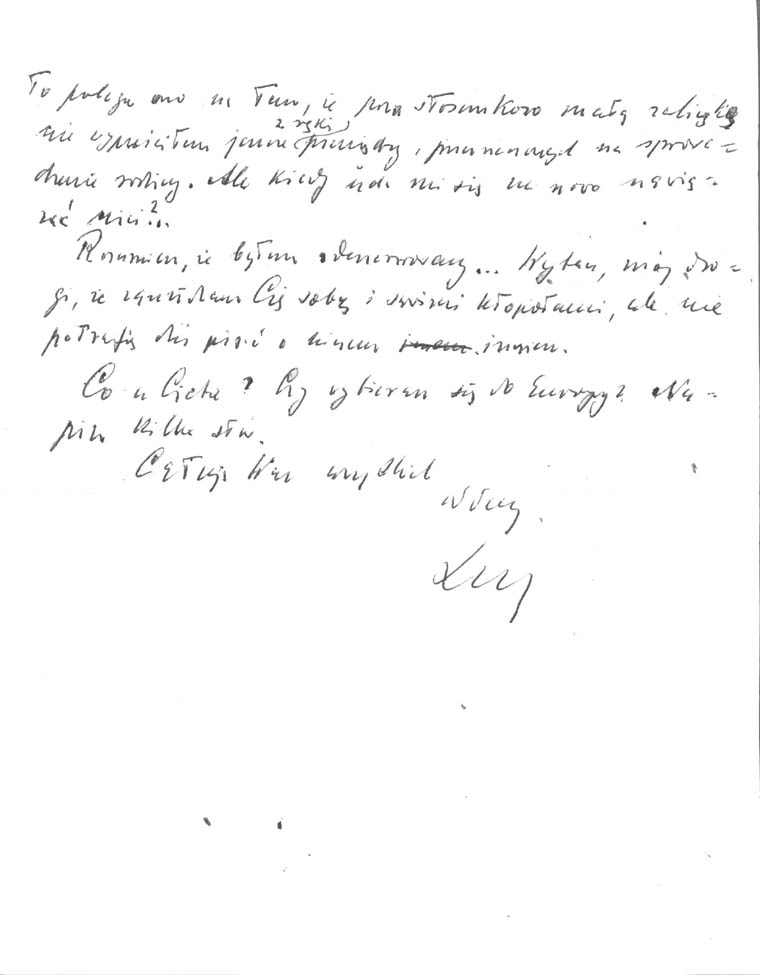 To polega ono na tem, że poza stosunkowo małą zaliczką
nie wypuściłem jeszcze z ręki pieniędzy, przeznaczonych na sprowa=
dzenie rodziny. Ale kiedy uda mi się na nowo nawią=
zać nici?..
Rozumiesz, że byłem zdenerwowany... Wybacz, mój dro=
gi, że zanudzam Cię sobą i swoimi kłopotami, ale nie
potrafię dziś pisać o niczem innem.
Co u Ciebie? Czy wybierasz się do Europy? Na=
pisz kilka słów.
Całuję Was wszystkich